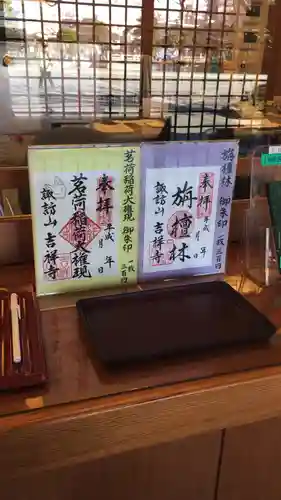 茗荷稲荷大権現 御朱印 一枚 三百円
奉拝
平成 年 月 日
茗荷権現
諏訪山 吉祥寺
旃檀林 御朱印 一枚 三百円
奉拝
平成 年 月 日
旃檀林
諏訪山 吉祥寺